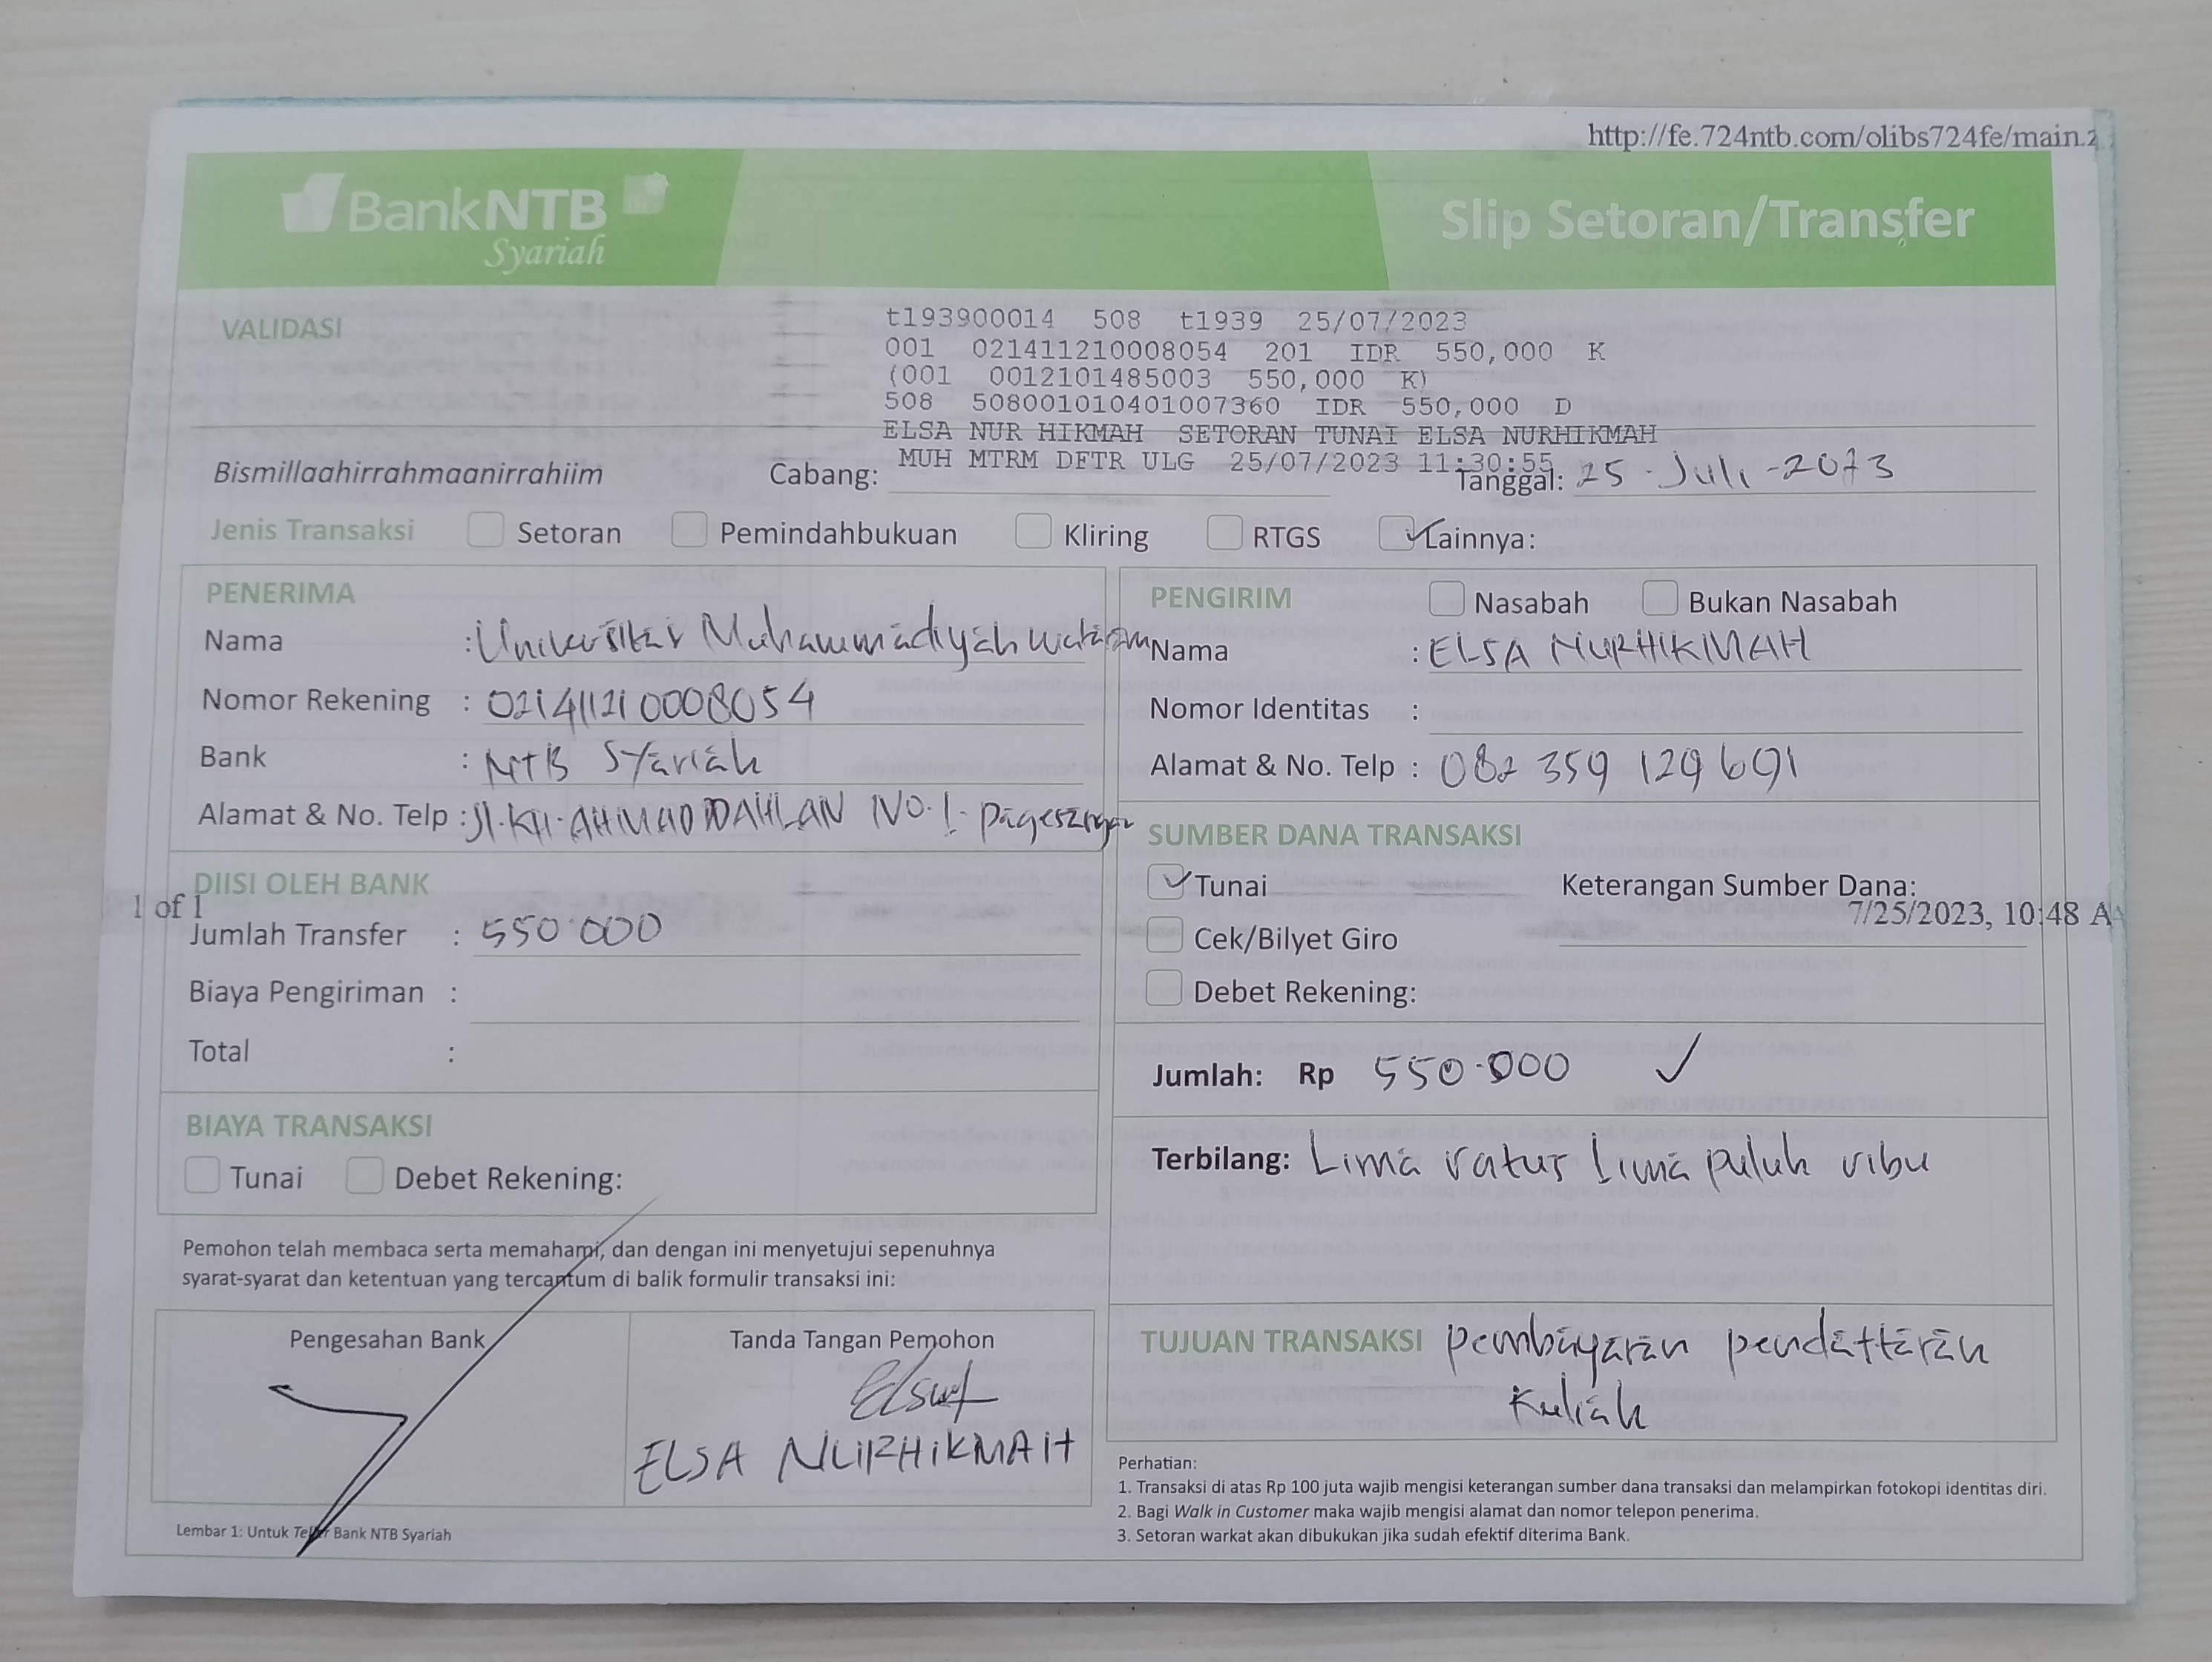 http://fe.724ntb.com/olibs724fe/main.z
BankNTB
Syariah
Slip Setoran/Transfer
VALIDASI
t193900014 508 t1939 25/07/2023
001 021411210008054 201 IDR 550,000 K
(001 0012101485003 550,000 K)
508 508001010401007360 IDR 550,000 D
ELSA NUR HIKMAH SETORAN TUNAI ELSA NURHIKMAH
MUH MTRM DFTR ULG 25/07/2023 11:30:55
Bismillaahirrahmaanirrahiim Cabang: Tanggal: 25 - Juli - 2023
Jenis Transaksi Setoran Pemindahbukuan Kliring RTGS Lainnya:
PENERIMA
Nama : Universitas Muhammadiyah Mataram
Nomor Rekening : 021411210008054
Bank : NTB Syariah
Alamat & No. Telp : Jl. KH. AHMAD DAHLAN NO. 1. Pagesangan
PENGIRIM Nasabah Bukan Nasabah
Nama : ELSA NURHIKMAH
Nomor Identitas :
Alamat & No. Telp : 082 359 129 691
DIISI OLEH BANK
1 of 1
Jumlah Transfer : 550.000
Biaya Pengiriman :
Total :
SUMBER DANA TRANSAKSI
Tunai Keterangan Sumber Dana:
7/25/2023, 10:48 A
Cek/Bilyet Giro
Debet Rekening:
Jumlah: Rp 550.000
Terbilang: Lima ratus Lima puluh ribu
BIAYA TRANSAKSI
Tunai Debet Rekening:
Pemohon telah membaca serta memahami, dan dengan ini menyetujui sepenuhnya
syarat-syarat dan ketentuan yang tercantum di balik formulir transaksi ini:
Pengesahan Bank
Tanda Tangan Pemohon
ELSA NURHIKMAH
Lembar 1: Untuk Teller Bank NTB Syariah
TUJUAN TRANSAKSI pembayaran pendaftaran
Kuliah
Perhatian:
1. Transaksi di atas Rp 100 juta wajib mengisi keterangan sumber dana transaksi dan melampirkan fotokopi identitas diri.
2. Bagi Walk in Customer maka wajib mengisi alamat dan nomor telepon penerima.
3. Setoran warkat akan dibukukan jika sudah efektif diterima Bank.